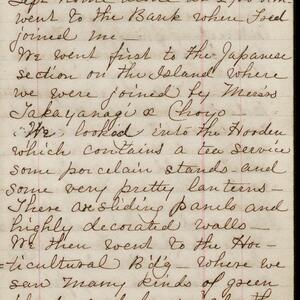 went to the Bank where Fred
joined me—
We went first to the Japanese
section on the Island where
we were joined by Messrs
Takayanagi & Choyo
We looked into the Hooden
which contains a tea service
some porcelain stands and
some very pretty lanterns—
There are sliding panels and
highly decorated walls—
We then went to the Hor-
=ticultural B'd'g where we
saw many kinds of green